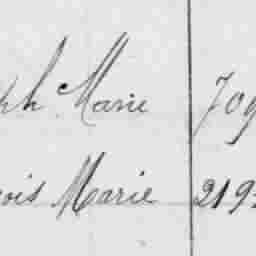 ph Marie 709
çois Marie 219